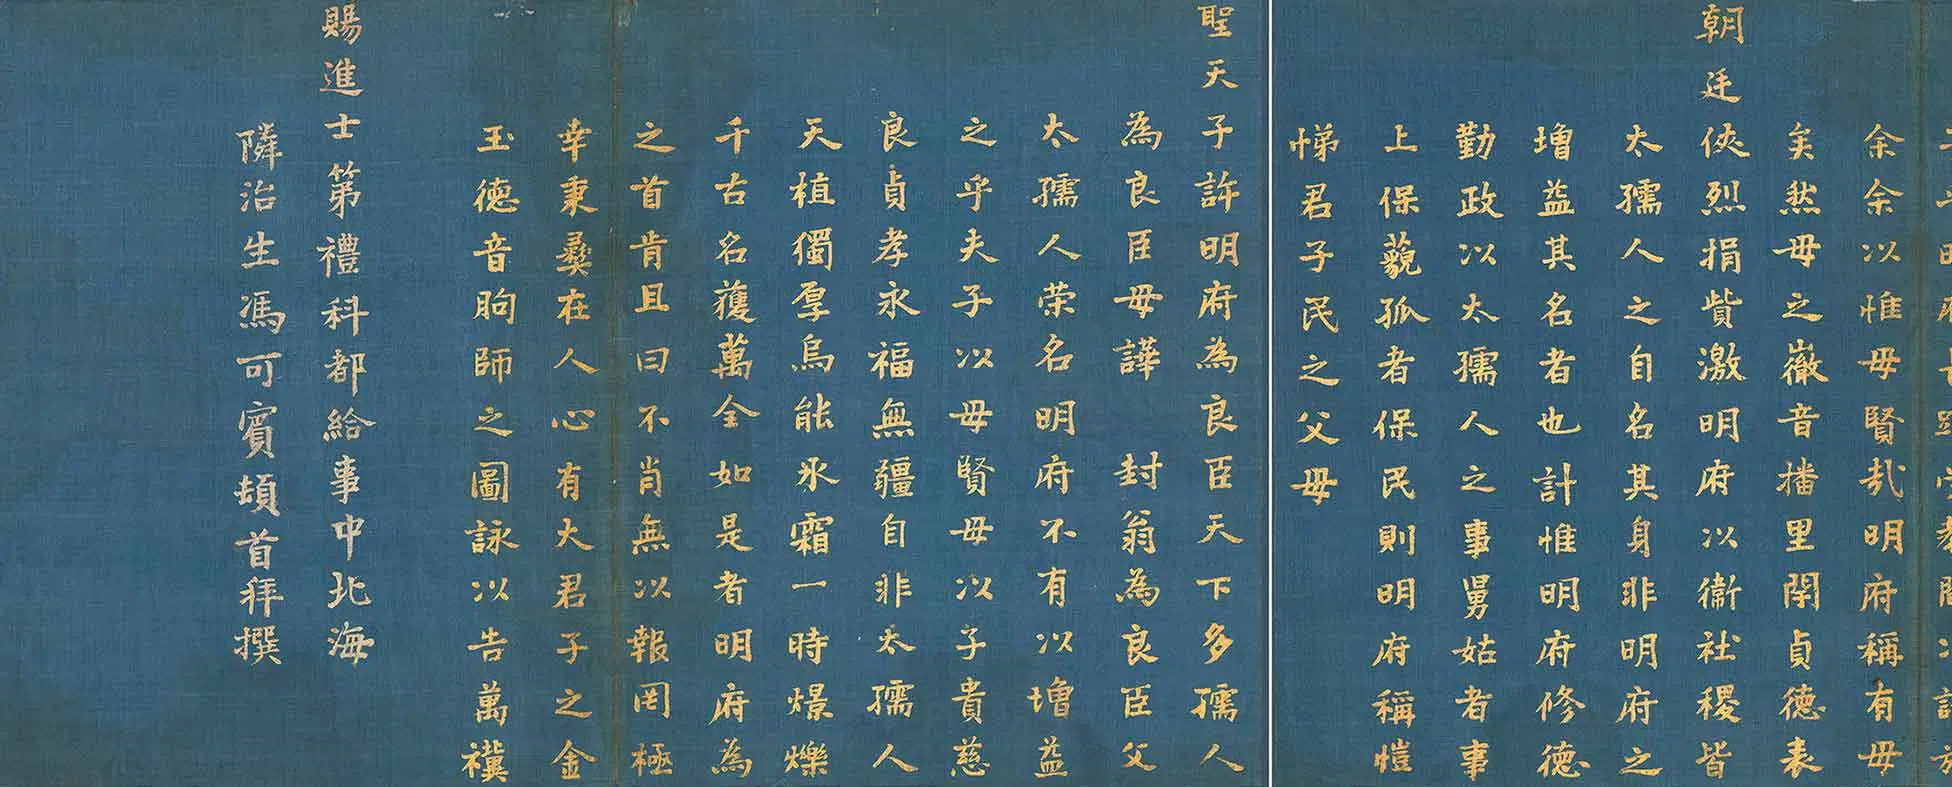 余余以惟母賢哉明府稱有母
矣然母之徽音播里閈貞德表
朝廷俠烈捐貲激明府以衞社稷皆
太孺人之自名其身非明府之
增益其名者也計惟明府修德
勤政以太孺人之事舅姑者事
上保藐孤者保民則明府稱愷
悌君子民之父母
聖天子許明府為良臣天下多孺人
為良臣母譁 封翁為良臣父
太孺人荣名明府不有以增益
之乎夫子以母賢母以子貴慈
良貞孝永福無疆自非太孺人
天植獨厚烏能氷霜一時燝爍
千古名獲萬全如是者明府為
之首肯且曰不肖無以報罔極
幸秉彝在人心有大君子之金
玉德音眴師之圖詠以告萬禩
賜進士第禮科都給事中北海
隣治生馮可賓頓首拜撰